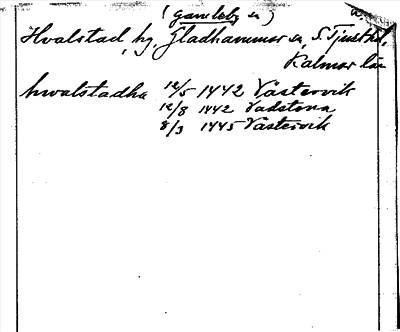 (Gamleby sn)
Hvalstad, by, Gladhammar sn, S. Tjust hd,
Kalmar län
hwalstadha 12/5 1442 Västervik
12/8 1442 Vadstena
8/3 1445 Västervik